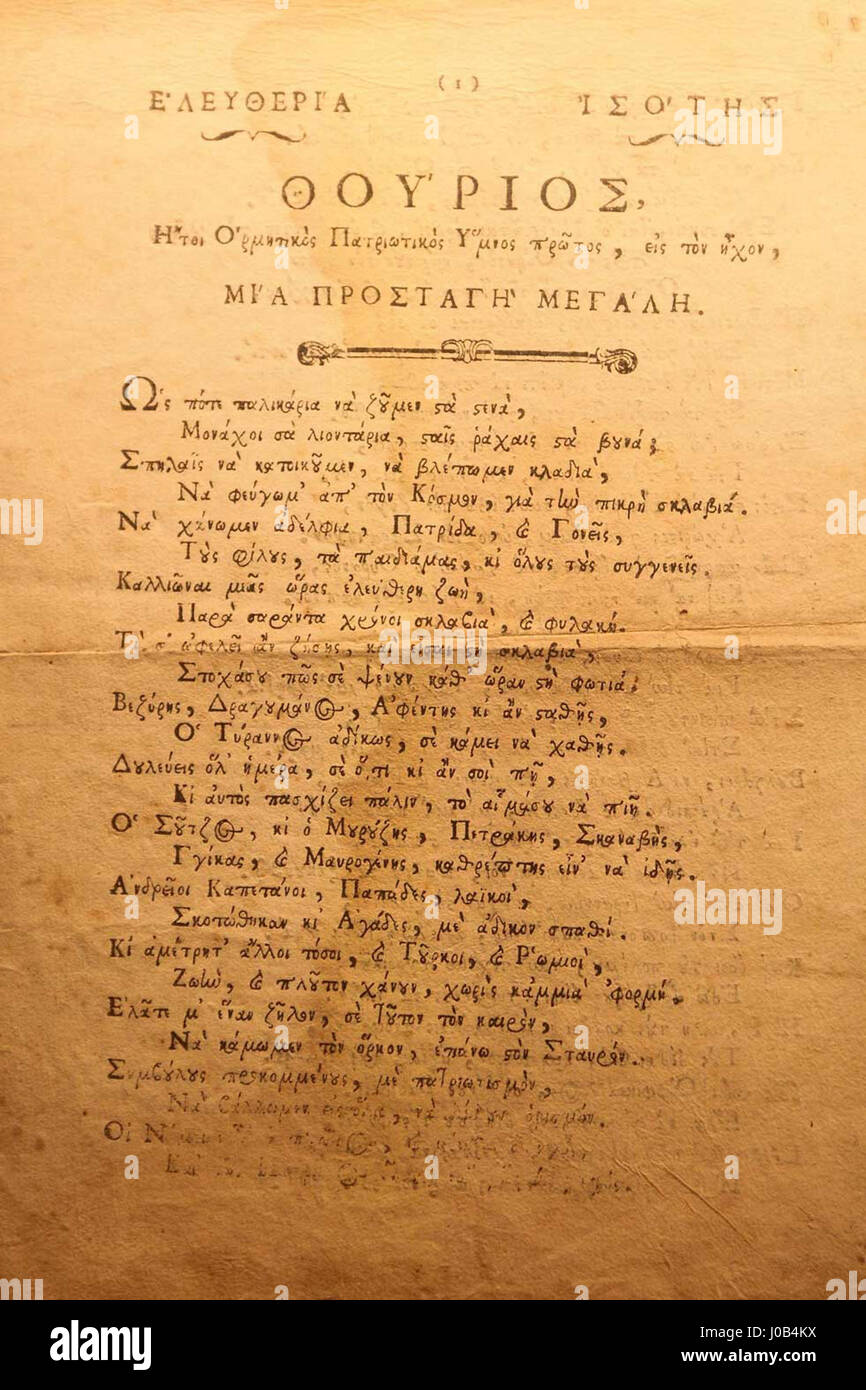 (1)
Ε᾿ΛΕΥΘΕΡΙ΄Α ᾿ΙΣΟ΄ΤΗΣ
ΘΟΥ΄ΡΙΟΣ,
Η῎τοι Ο῾ρμητικὸς Πατριωτικὸς Υ῞μνος πρῶτος, εἰς τὸν ἦχον,
ΜΙ΄Α ΠΡΟΣΤΑΓΗ` ΜΕΓΑ΄ΛΗ.
Ω῾ς πότε παλικάρια νὰ ζοῦμεν στὰ στενὰ,
Μονάχοι σὰ λιοντάρια, σταῖς ῥάχαις στὰ βουνά;
Σπηλαῖς νὰ κατοικοῦμεν, νὰ βλέπωμεν κλαδιὰ,
Νὰ φεύγωμ' ἀπ' τὸν Κόσμον, γιὰ τὴν πικρὴ σκλαβιά.
Νὰ χάνωμεν ἀδέλφια, Πατρίδα, καὶ Γονεῖς,
Τοὺς φίλους, τὰ παιδιάμας, κι ὅλους τοὺς συγγενεῖς.
Καλλιῶναι μιᾶς ὥρας ἐλεύθερη ζωὴ,
Παρὰ σαράντα χρόνοι σκλαβιὰ, καὶ φυλακή.
Τί σ' ὠφελεῖ ἂν ζήσῃς, καὶ εἶσαι στὴ σκλαβιὰ,
Στοχάσου πῶς σὲ ψένουν καθ' ὥραν στὴ φωτιά;
Βεζύρης, Δραγουμάνος, Α᾿φέντης κι ἂν σταθῇς,
Ο῾ Τύραννος ἀδίκως, σὲ κάμει νὰ χαθῇς.
Δουλεύεις ὅλ' ἡμέρα, σὲ ὅ,τι κι ἂν σοὶ πῇ,
Κι αὐτὸς πασχίζει πάλιν, τὸ αἷμάσου νὰ πιῇ.
Ο῾ Σοῦτζος, κι ὁ Μουρούζης, Πετράκης, Σκαναβῆς,
Γγίκας, καὶ Μαυρογένης, καθρέπτης εἶν' νὰ ἰδῇς.
Α᾿νδρεῖοι Καπετάνοι, Παπάδες, λαϊκοὶ,
Σκοτώθηκαν κι Α᾿γάδες, μὲ ἄδικον σπαθί.
Κι ἀμέτρητ' ἄλλοι τόσοι, καὶ Τοῦρκοι, καὶ Ρ῾ωμιοὶ,
Ζωὴν, καὶ πλοῦτον χάνουν, χωρὶς κάμμιὰ 'φορμή.
Ε᾿λᾶτε μ' ἕναν ζῆλον, σὲ τοῦτον τὸν καιρὸν,
Νὰ κάμωμεν τὸν ὅρκον, ἐπάνω στὸν Σταυρόν.
Συμβούλους προκομμένους, μὲ πατριωτισμὸν,
Νὰ βάλλωμεν εἰς ὅλα, νὰ δίδουν ὁρισμόν.
Οἱ
alamy
a
www.alamy.com
Image ID: J0B4KX